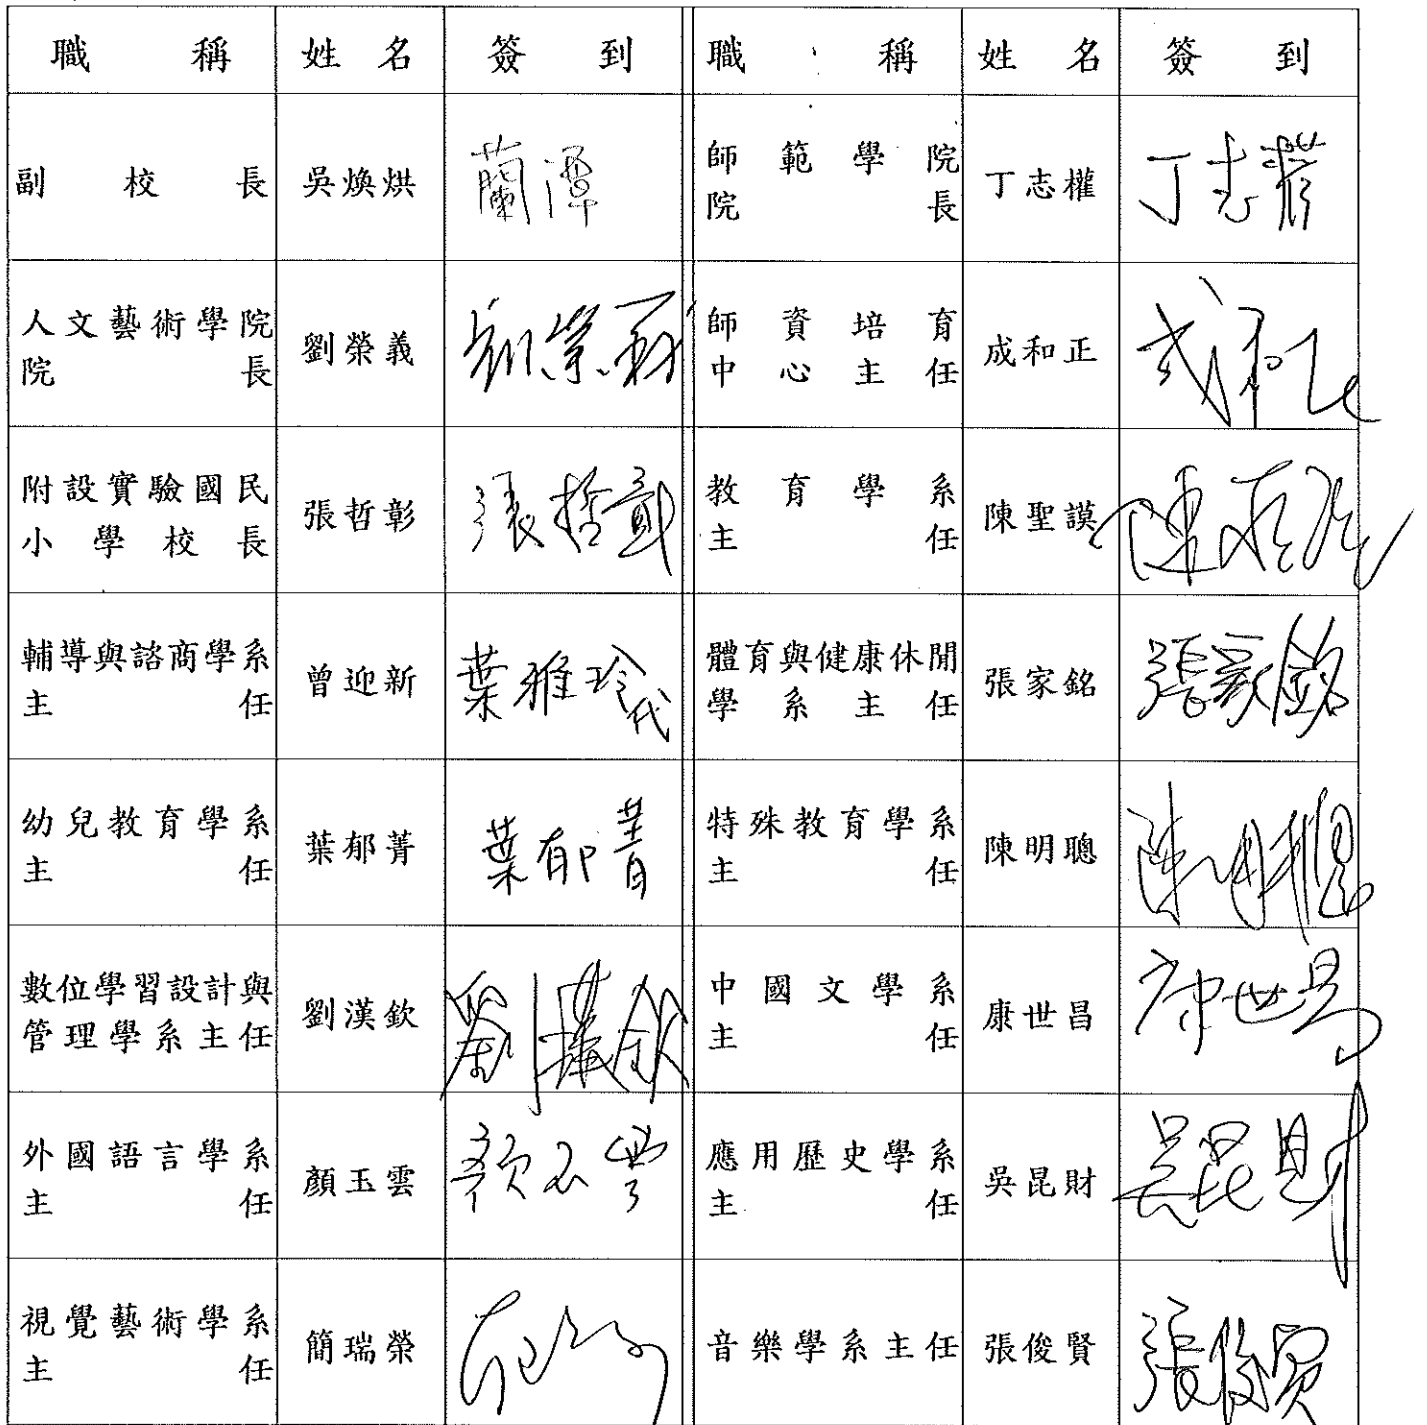 職稱 姓名 簽到 職稱 姓名 簽到
副校長 吳煥烘 蘭潭 師範學院
院長 丁志權 丁志權
人文藝術學院
院長 劉榮義 劉榮義 師資培育
中心主任 成和正 成和正
附設實驗國民
小學校長 張哲彰 張哲彰 教育學系
主任 陳聖謨
輔導與諮商學系
主任 曾迎新 葉雅玲代 體育與健康休閒
學系主任 張家銘 張家銘
幼兒教育學系
主任 葉郁菁 葉郁菁 特殊教育學系
主任 陳明聰 陳明聰
數位學習設計與
管理學系主任 劉漢欽 劉漢欽 中國文學系
主任 康世昌 康世昌
外國語言學系
主任 顏玉雲 顏玉雲 應用歷史學系
主任 吳昆財 吳昆財
視覺藝術學系
主任 簡瑞榮 音樂學系主任 張俊賢 張俊賢